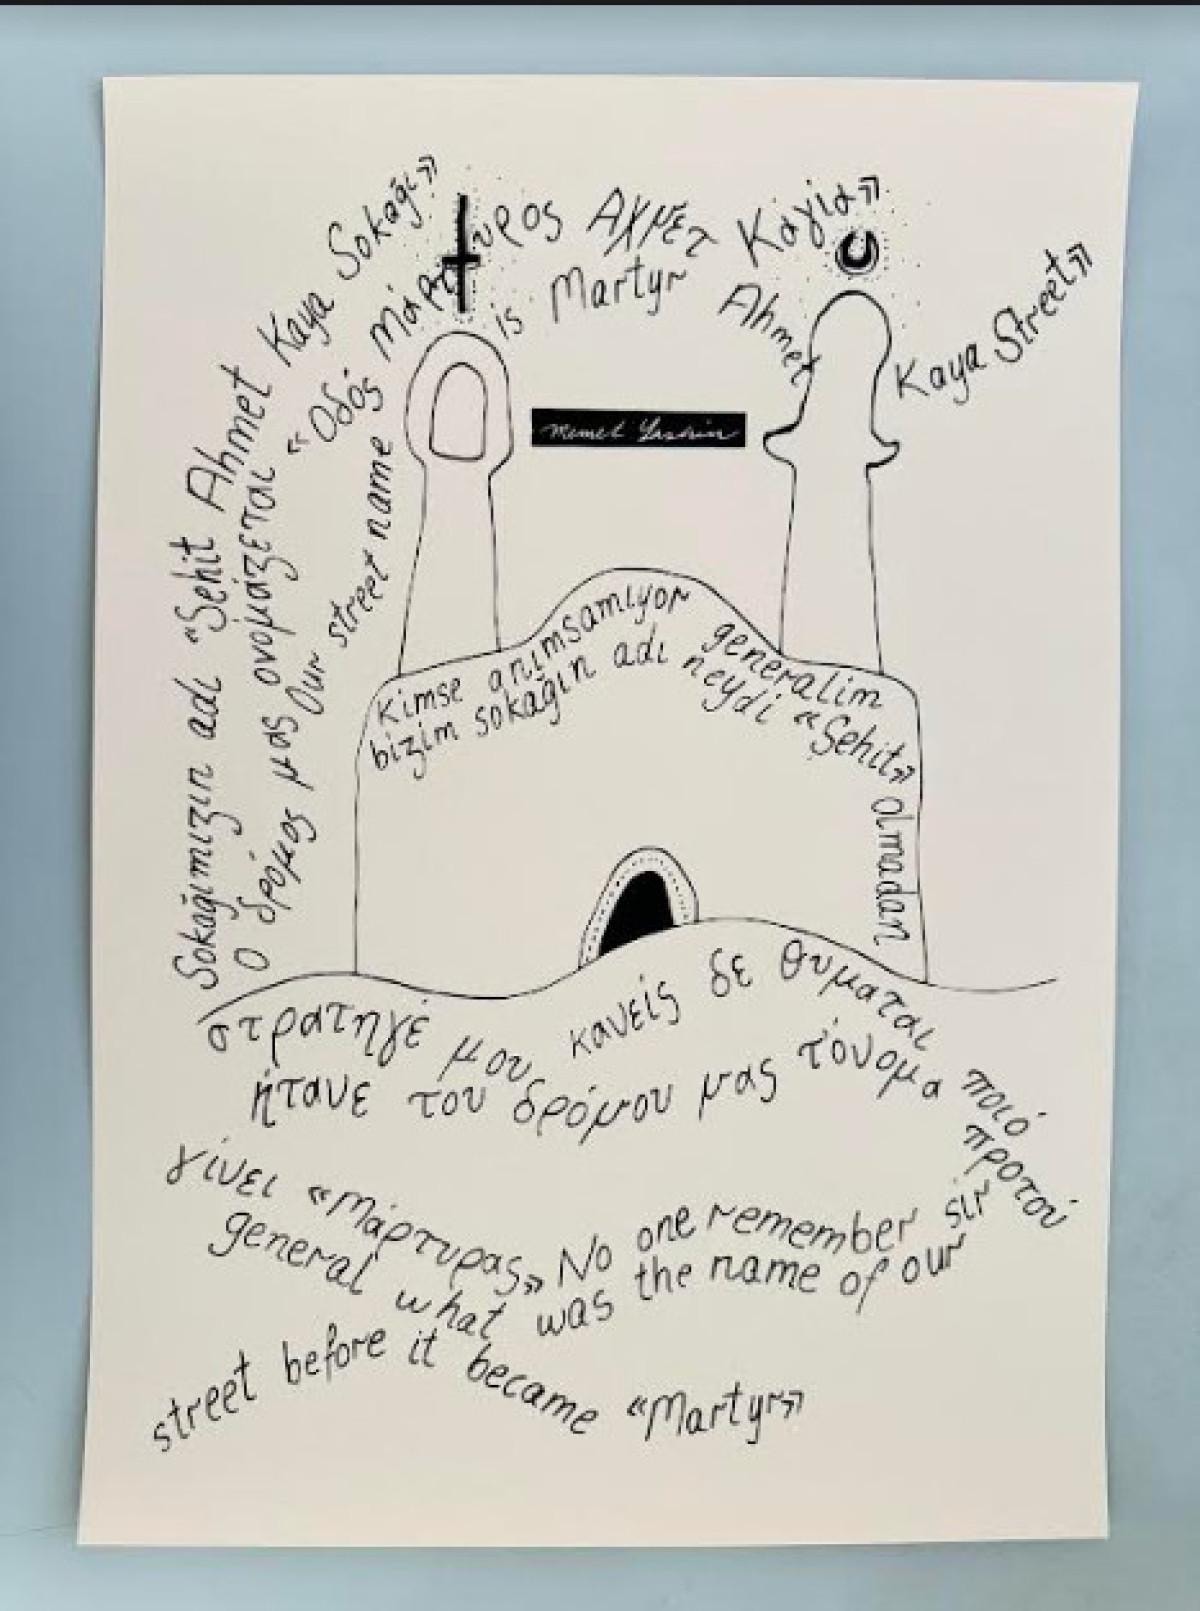 Sokağımızın adı «Şehit Ahmet Kaya Sokağı»
Ο δρόμος μας ονομάζεται «Οδός Μάρτυρος Αχμέτ Κάγια»
Our street name is Martyr Ahmet Kaya Street»
Memet Yashin
kimse anımsamıyor generalim
bizim sokağın adı neydi «Şehit» olmadan
στρατηγέ μου κανείς δε θυμαται ποιό
ήτανε του δρόμου μας τ'όνομα προτού
γίνει «Μάρτυρας» No one remember sir
general what was the name of our
street before it became «Martyr»